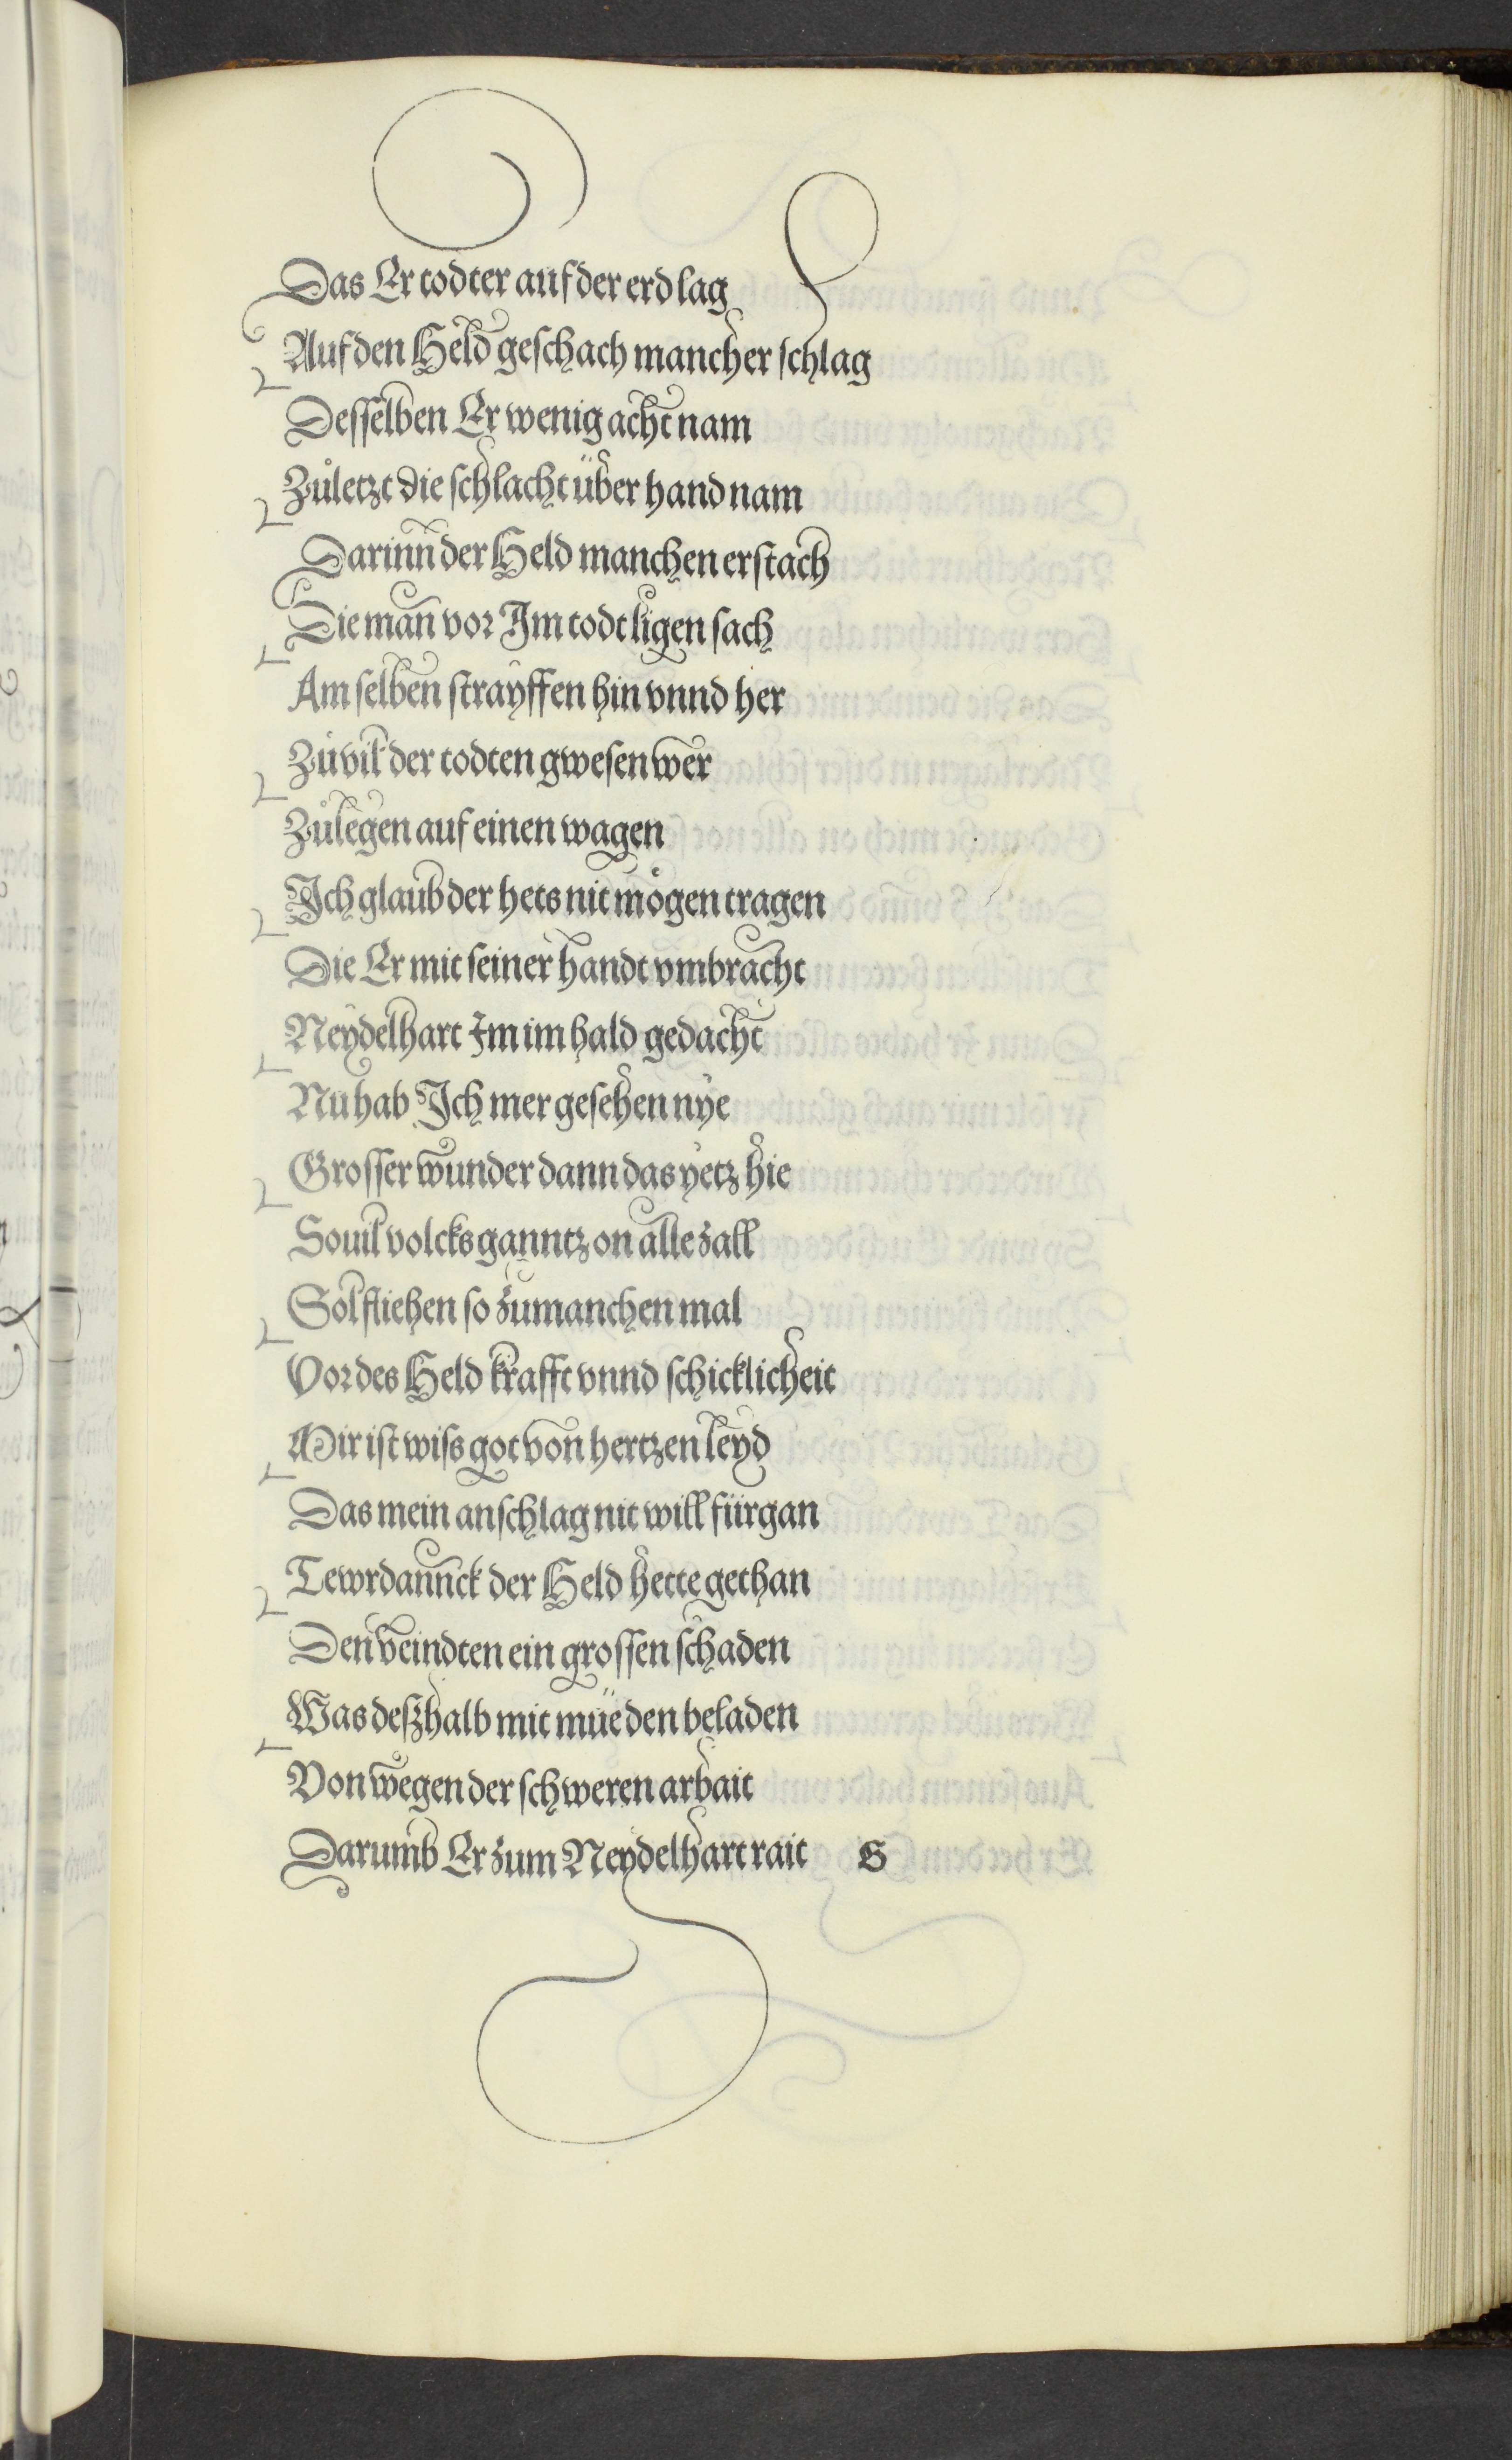 Das Er todter auf der erd lag
Auf den Held geschach mancher schlag
Desselben Er wenig acht nam
Zůletzt die schlacht über hand nam
Darinn der Held manchen erstach
Die man vor Im todt ligen sach
Am selben strayffen hin vnnd her
Zůvil der todten gwesen wer
Zůlegen auf einen wagen
Ich glaub der hets nit mögen tragen
Die Er mit seiner handt vmbracht
Neydelhart Im im hald gedacht
Nu hab Ich mer gesehen nye
Grosser wunder dann das yetz hie
Souil volcks ganntz on alle zall
Sol fliehen so zumanchen mal
Vor des Held krafft vnnd schicklicheit
Mir ist wiss got von hertzen leyd
Das mein anschlag nit will fürgan
Tewrdannck der Held hette gethan
Den veindten ein grossen schaden
Was deßhalb mit müeden beladen
Von wegen der schweren arbait
Darumb Er zum Neydelhart rait S